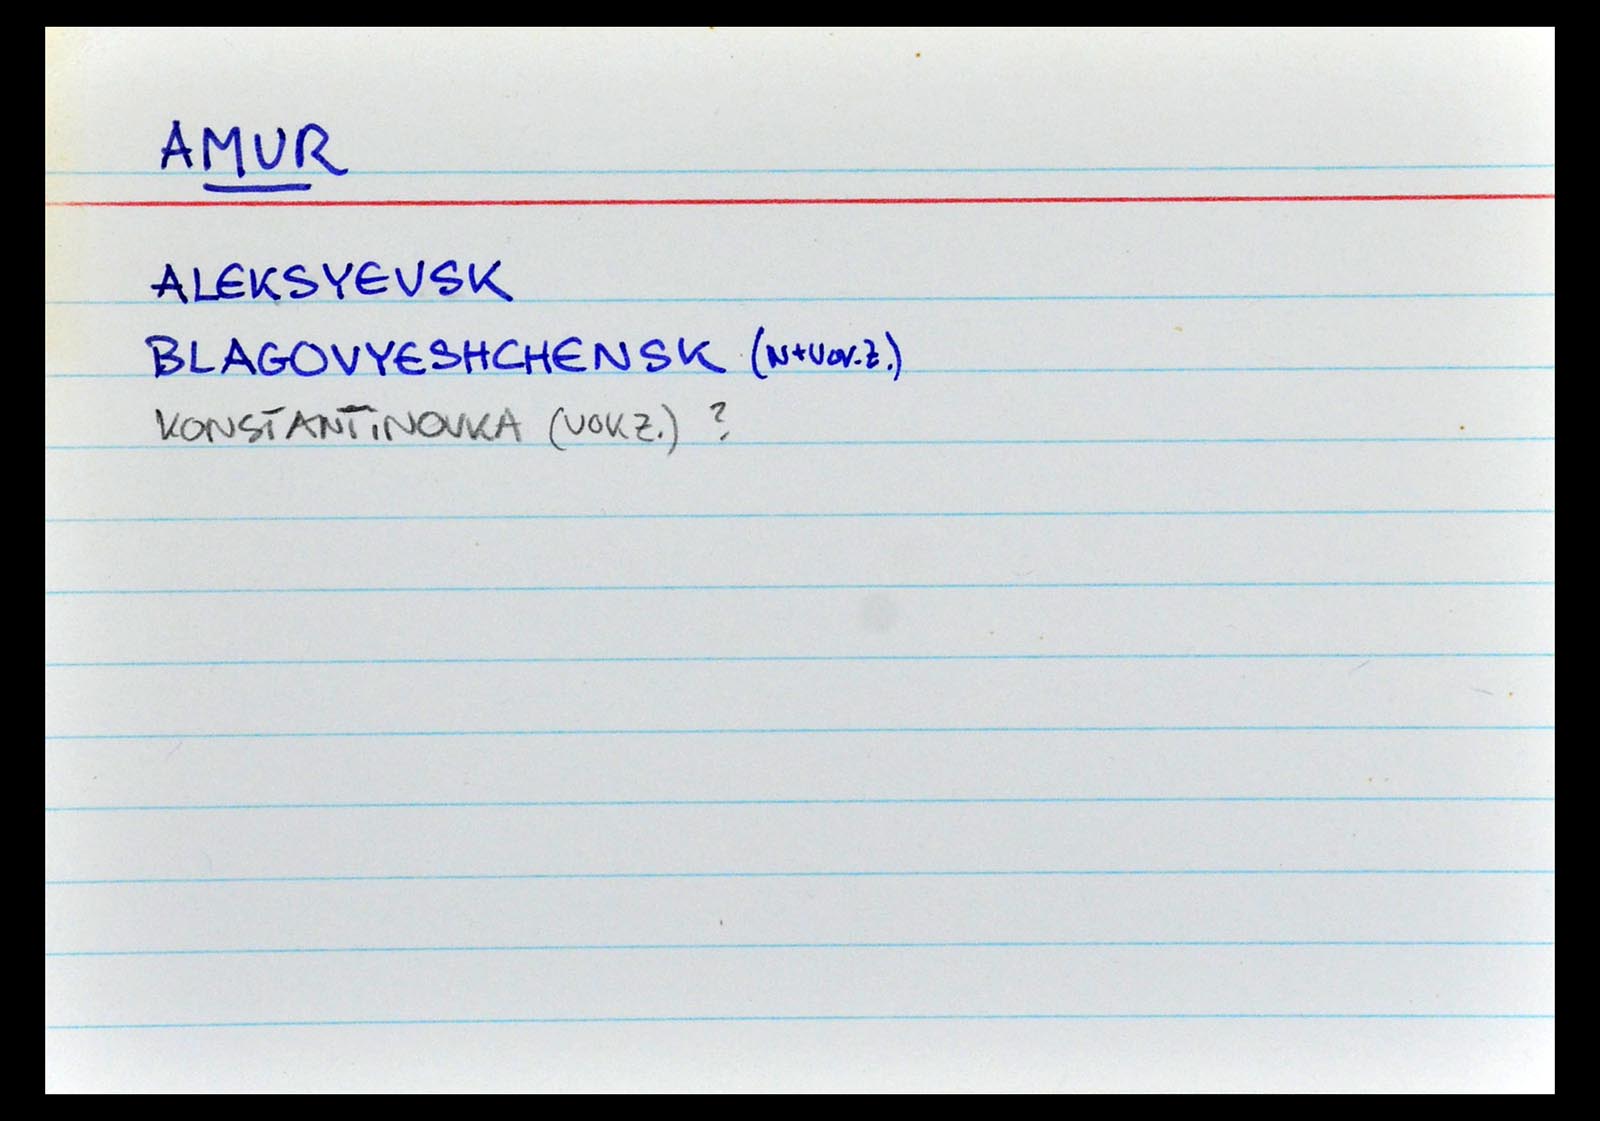 AMUR
ALEKSYEVSK
BLAGOVYESHCHENSK (N+VOK.Z.)
KONSTANTINOVKA (VOK.Z.) ?